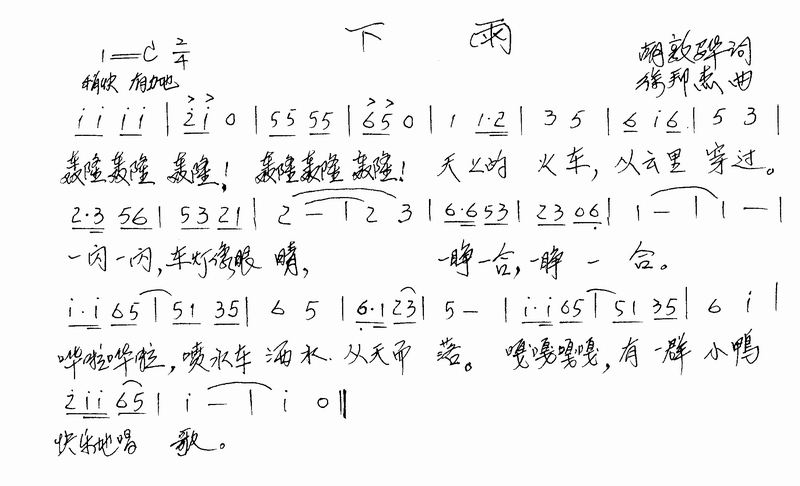 下 雨
1=C 2/4
胡敦骅词
稍快 有力地
徐邦杰 曲
i i i i | 2 i 0 | 5 5 5 5 | 6 5 0 | 1 1·2 | 3 5 | 6 i 6 | 5 3 |
轰隆轰隆 轰隆! 轰隆轰隆 轰隆! 天上的 火车, 从云里 穿过。
2·3 5 6 | 5 3 2 1 | 2 — | 2 3 | 6·6 5 3 | 2 3 0 6 | 1 — | 1 — |
一闪一闪,车灯像眼 睛, 一睁一合,一睁 一 合。
i·i 6 5 | 5 1 3 5 | 6 5 | 6·1 2 3 | 5 — | i·i 6 5 | 5 1 3 5 | 6 i |
哗啦哗啦,喷水车 洒水. 从天而 落。 嘎嘎嘎嘎,有一群 小鸭
2 i i 6 5 | i — | i 0 ‖
快乐地唱 歌。